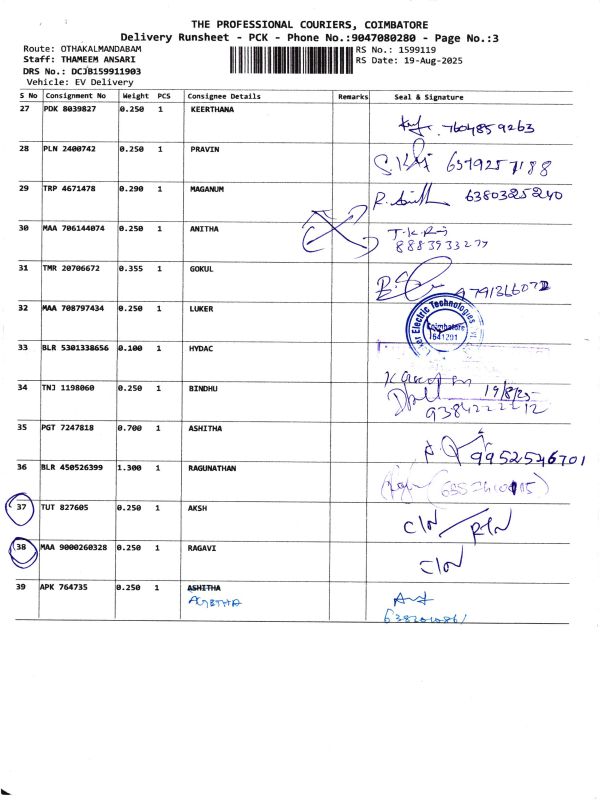 THE PROFESSIONAL COURIERS, COIMBATORE
Delivery Runsheet - PCK - Phone No.:9047080280 - Page No.:3
Route: OTHAKALMANDABAM
RS No.: 1599119
Staff: THAMEEM ANSARI
RS Date: 19-Aug-2025
DRS No.: DCJB159911903
Vehicle: EV Delivery
S No Consignment No Weight PCS Consignee Details Remarks Seal & Signature
27 PDK 8039827 0.250 1 KEERTHANA
7604859263
28 PLN 2400742 0.250 1 PRAVIN
29 TRP 4671478 0.290 1 MAGANUM
6380325240
30 MAA 706144074 0.250 1 ANITHA
31 TMR 20706672 0.355 1 GOKUL
32 MAA 708797434 0.250 1 LUKER
Electric Technologies
Coimbatore
641201
33 BLR 5301338656 0.100 1 HYDAC
34 TNJ 1198060 0.250 1 BINDHU
19/8/25
9384222212
35 PGT 7247818 0.700 1 ASHITHA
9952546701
36 BLR 450526399 1.300 1 RAGUNATHAN
37 TUT 827605 0.250 1 AKSH
38 MAA 9000260328 0.250 1 RAGAVI
39 APK 764735 0.250 1 ASHITHA